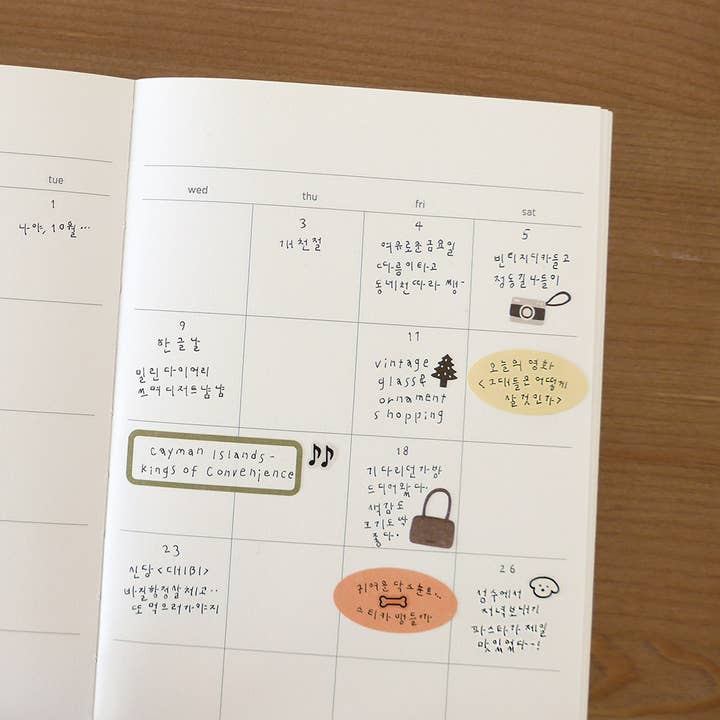 tue
wed
thu
fri
sat
1
나이스, 10월...
3
개천절
4
여유로운 금요일
따릉이 타고
동네 천 따라 쌩~
5
빈티지 디카 들고
정동길 나들이
9
한글날
밀린 다이어리
쓰며 디저트 냠냠
11
vintage
glass &
ornament
shopping
오늘의 영화
<그대들은 어떻게
살 것인가>
cayman islands-
kings of convenience
18
기다리던 가방
드디어 왔다..
색감도
크기도 딱
좋다.
23
신당 <디핍>
바질 항정살 최고..
또 먹으러 가야지
귀여운 닥스훈트..
스티커 만들까
26
성수에서
저녁 보내기
파스타가 제일
맛있었다..!